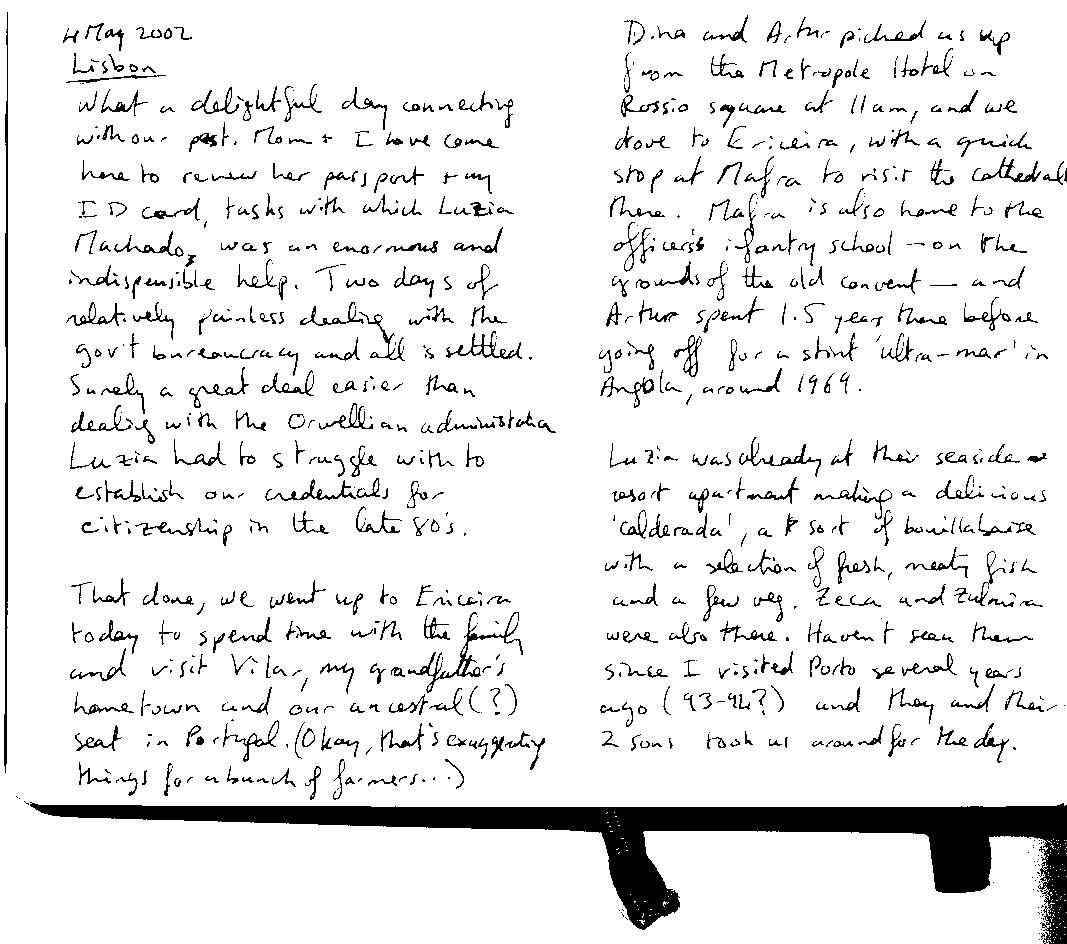 4 May 2002
Lisbon
What a delightful day connecting
with our past. Mom + I have come
here to renew her passport + my
ID card, tasks with which Luzia
Machado, was an enormous and
indispensible help. Two days of
relatively painless dealing with the
gov't bureaucracy and all is settled.
Surely a great deal easier than
dealing with the Orwellian administration
Luzia had to struggle with to
establish our credentials for
citizenship in the late 80's.
That done, we went up to Ericeira
today to spend time with the family
and visit Vilar, my grandfather's
hometown and our ancestral (?)
seat in Portugal. (Okay, that's exaggerating
things for a bunch of farmers...)
Dina and Artur picked us up
from the Metropole Hotel on
Rossio square at 11am, and we
drove to Ericeira, with a quick
stop at Mafra to visit the cathedral
there. Mafra is also home to the
officer's infantry school — on the
grounds of the old convent — and
Artur spent 1.5 years there before
going off for a stint 'ultra-mar' in
Angola, around 1969.
Luzia was already at their seaside
resort apartment making a delicious
'calderada', a sort of bouillabaise
with a selection of fresh, meaty fish
and a few veg. Zeca and Zulmira
were also there. Haven't seen them
since I visited Porto several years
ago (93-94?) and they and their
2 sons took us around for the day.